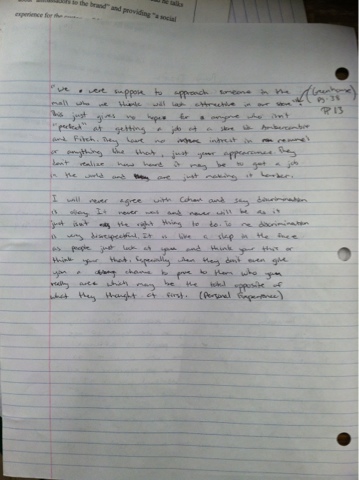 ambassadors to the brand" and providing "a social
experience for the
"We were suppose to approach someone in the
mall who we think will look attractive in our store." (Greenhouse)
This just gives no hope for anyone who isn't pg. 28
"perfect" at getting a job at a store like Abercrombie P 13
and Fitch. They have no intrest in
or anything like that, just your appearance. They
don't realize how hard it may be to get a job
in the world and they are just making it harder.
I will never agree with Cohen and say discrimination
is okay. It never was and never will be as it
just isn't the right thing to do. To me discrimination
is very disrespectful. It is like a slap in the face
as people just look at you and think your this or
think your that. Especially when they don't even give
you a chance to prove to them who you
really are which may be the total opposite of
what they thought at first. (Personal Experience)